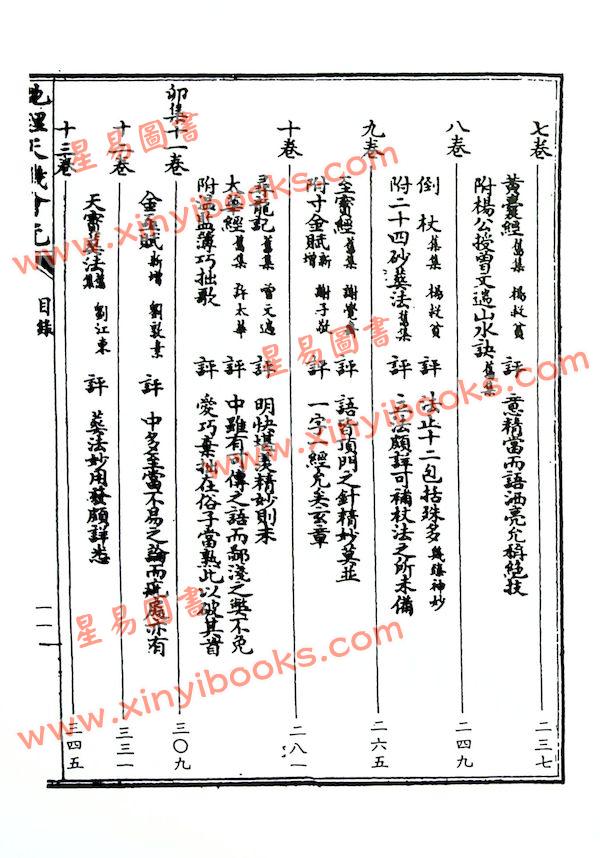 七卷 二三七
黃囊經 舊集 楊救貧 評 意精當而語洒亮允稱絕技
附楊公授曾文遄山水訣 舊集
八卷 二四九
倒杖 舊集 楊救貧 評 法止十二包括殊多幾臻神妙
附二十四砂葬法 舊集 評 立法頗詳可補杖法之所未備
九卷 二六五
至寶經 舊集 謝覺齋 評 語皆頂門之針精妙莫並
附寸金賦 新增 謝子 評 一字一經允矣玄章
十卷 二八一
尋龍記 舊集 曾文遄 評 明快堪美精妙則未
太華經 舊集 許太華 評 中雖有可傳之語而鄙淺之弊不免
附溫盬簿巧拙歌 評 愛巧棄拙在俗子當熟此以破其盲
卯集十一卷 三〇九
金函賦 新增 劉敦素 評 中多至當不易之論而疵處亦有
十二卷 三三一
天寶葬法 舊集 劉江東 評 葬法妙用發頗詳悉
十三卷 三四五
地理天機會元
目錄
一一
星易圖書
www.xinyibooks.com
星易圖書
www.xinyibooks.com
星易圖書
www.xinyibooks.com